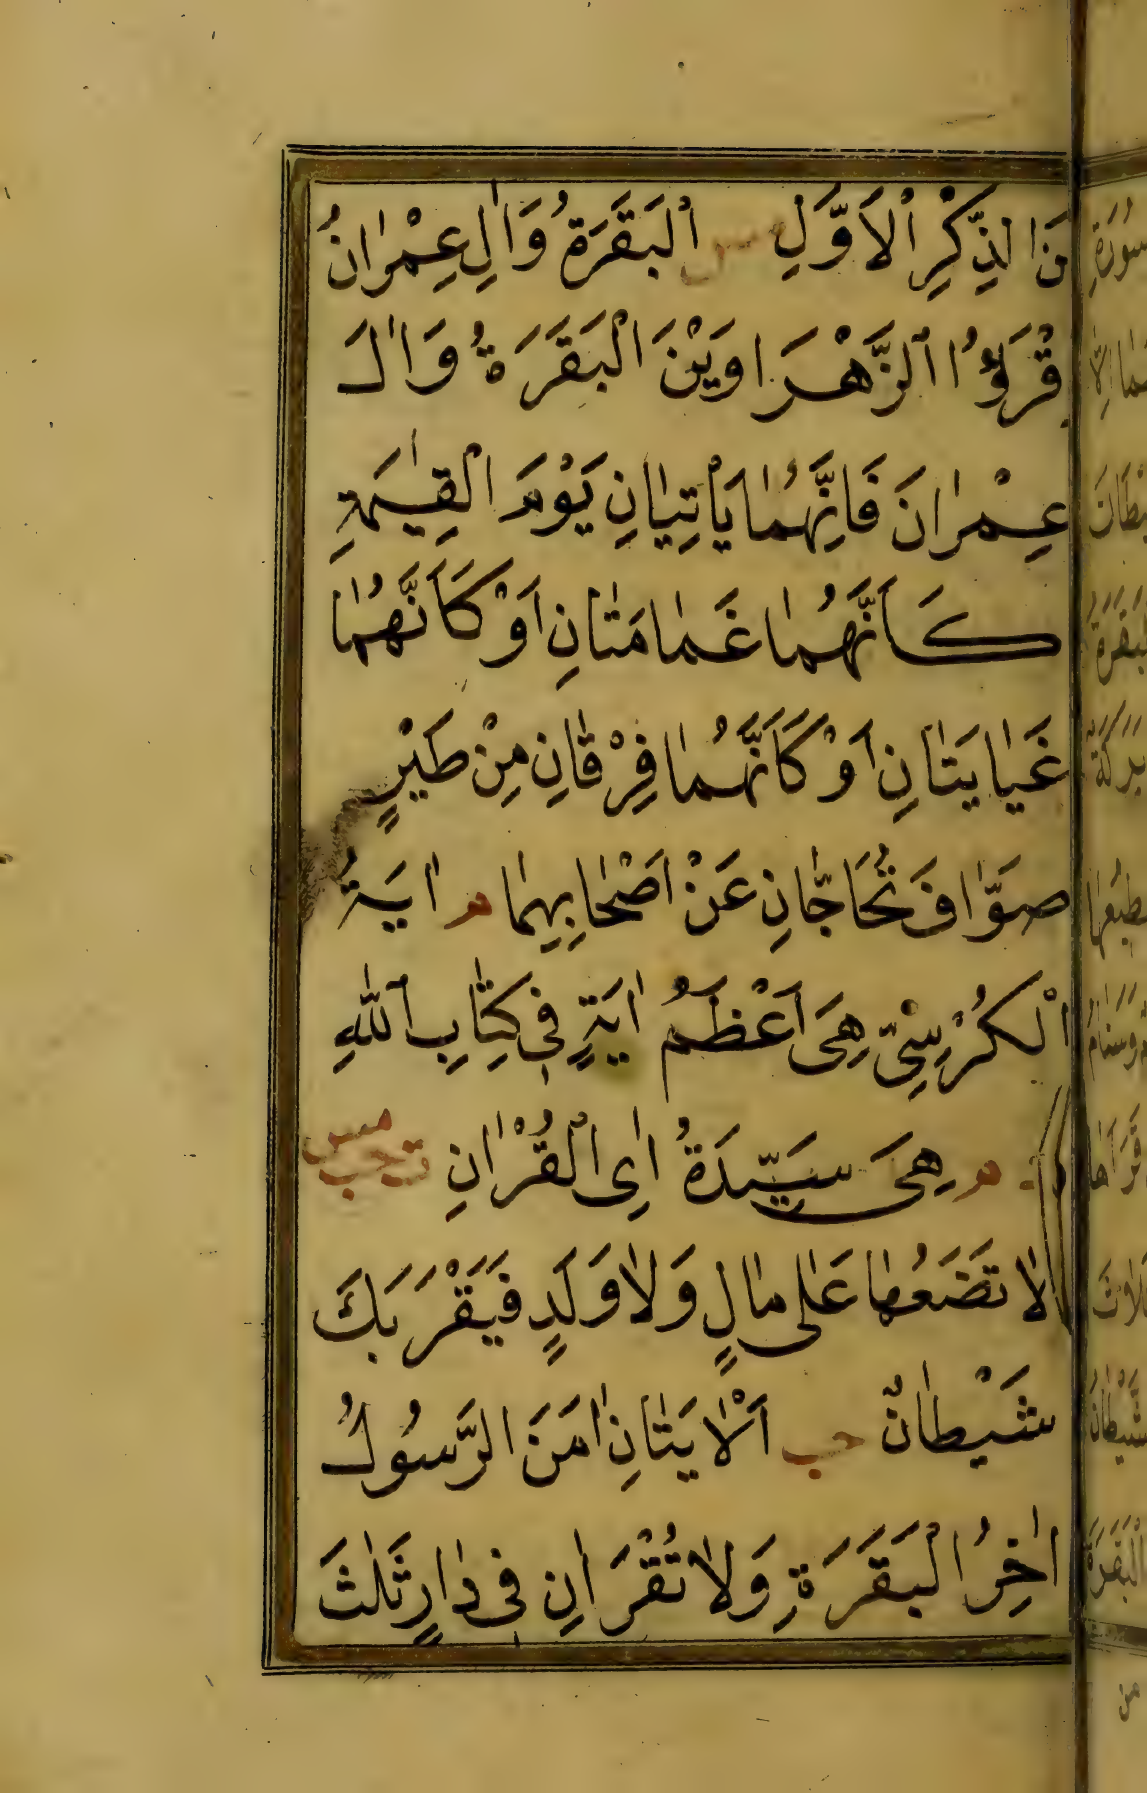 مِنَ الذِّكْرِ الْاَوَّلِ مس اَلْبَقَرَةُ وَاٰلِ عِمْرَانُ
قْرَؤُا الزَّهْرَاوَيْنَ الْبَقَرَةُ وَاٰلَ
عِمْرَانَ فَاِنَّهُمَا يَاْتِيَانِ يَوْمَ الْقِيٰمَةِ
كَاَنَّهُمَا غَمَامَتَانِ اَوْ كَاَنَّهُمَا
غَيَايَتَانِ اَوْ كَاَنَّهُمَا فِرْقَانِ مِنْ طَيْرٍ
صَوَّافَ تُحَاجَّانِ عَنْ اَصْحَابِهِمَا م اٰيَةُ
الْكُرْسِىِّ هِىَ اَعْظَمُ اٰيَةٍ فِى كِتَابِ اللّٰهِ
م هِىَ سَيِّدَةُ اٰىِ الْقُرْاٰنِ ت حب مس
لَا تَضَعُهَا عَلٰى مَالٍ وَلَا وَلَدٍ فَيَقْرَبَكَ
شَيْطَانٌ حب اَلْاٰيَتَانِ اٰمَنَ الرَّسُولُ
اٰخِرُ الْبَقَرَةِ وَلَا تُقْرَاٰنِ فِى دَارٍ ثَلٰثَ